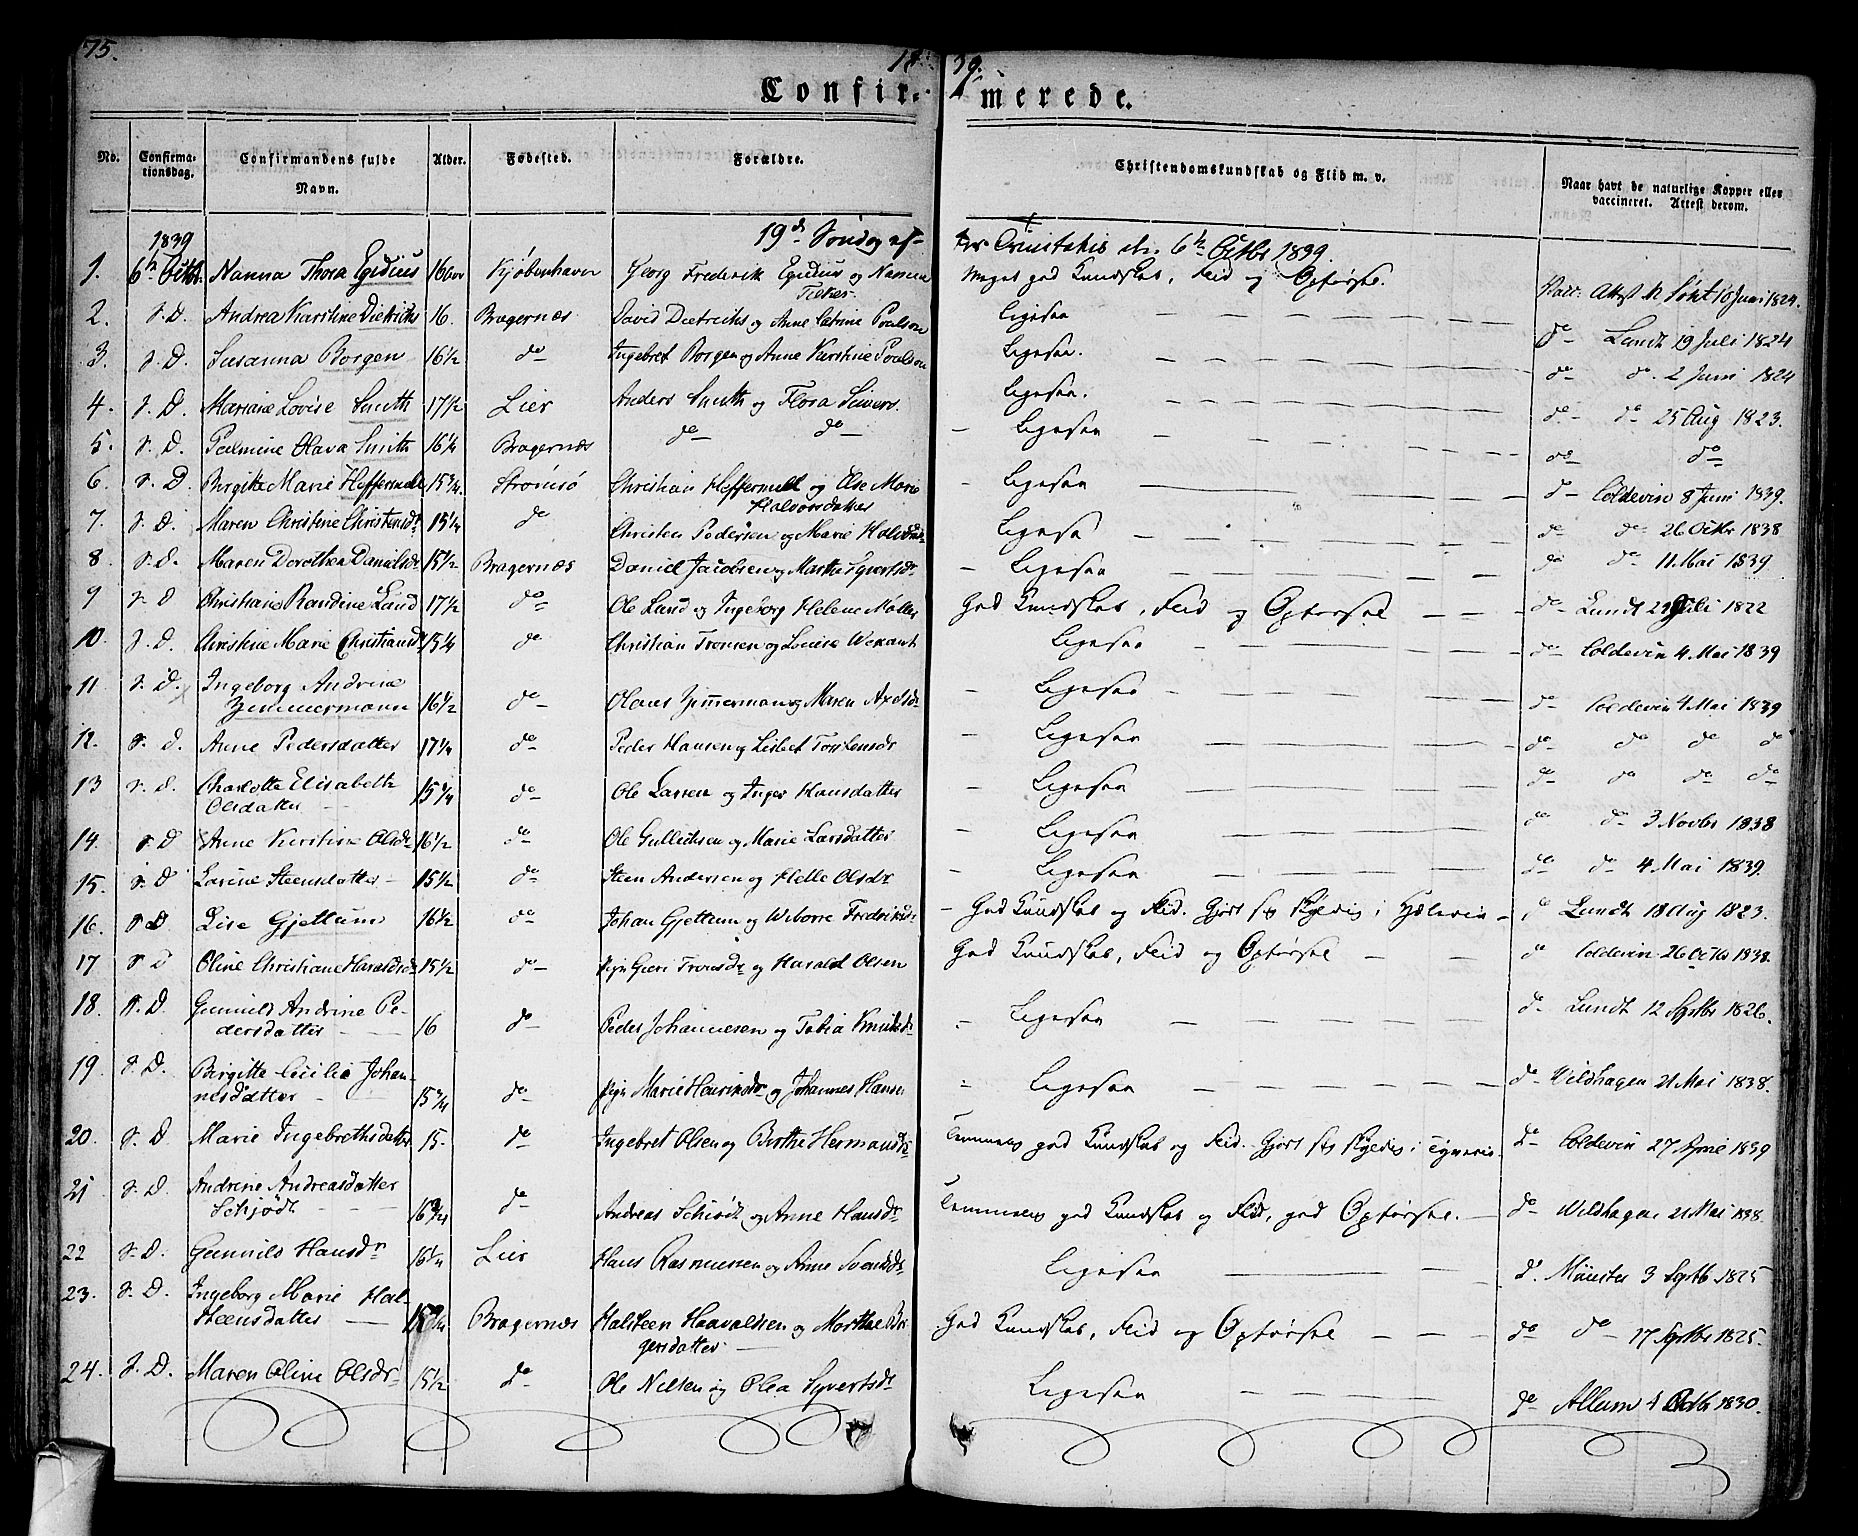 75.
18 39.
Confir- merede.
No. Confirma-tionsdag. Confirmandens fulde Navn. Alder. Fødested. Forældre. Christendomskundskab og Flid m. v. Naar havt de naturlige Kopper eller vaccineret. Attest derom.
1839 19de Søndag ef- ter Trinitatis den 6te Octbr 1839.
1. 6te Octbr Nanna Thora Egidius 16 Kjøbenhavn Georg Frederik Egidius og Nanna Meget god Kundskab, Flid og Opførsel. Vacc. Attest 10 Juni 1824.
2. s. D. Andrea Karstine Dietrichs 16. Bragernæs David Dietrichs og Anne Catrine Poulsen Ligesaa do Lundt 19 Juli 1824
3. s. D. Susanna Borgen 16½ do Ingebret Borgen og Anne Kirstine Poulsen Ligesaa. do do 2 Juni 1824
4. s. D. Mariane Lovise Smith 17½ Lier Anders Smith og Flora Sivers. Ligesaa. do do 25 Aug 1823.
5. s. D. Palmine Olava Smith 16¼ Bragernæs do do Ligesaa do do
6. s. D. Birgitte Marie Heffermehl 15¾. Strømsø Christian Heffermehl og Else Marie Halvorsdatter Ligesaa do Coldevin 8 Juni 1839.
7. s. D. Maren Christine Christensdr 15¼ do Christen Pedersen og Marie Halvorsdr Ligesaa do do 26 Octbr 1838
8. s. D. Maren Dorothea Danielsdr 15½ Bragernæs Daniel Jacobsen og Marthe Syvertsdr Ligesaa do do 11 Mai 1839
9 s. D Christiane Randine Lund 17½ do Ole Lund og Ingeborg Helene Møller God Kundskab, Flid og Opførsel do Lundt 29 Juli 1822
10. s. D. Christine Marie Christiansdr 15¼ do Christian Tronsen og Lovise Wexant Ligesaa do Coldevin 4 Mai 1839
11 s. D. Ingeborg Andrine Zimmermann 16½ do Olaus Zimmerman og Maren Axelsdr Ligesaa do Coldevin 4 Mai 1839
12. s. D. Anne Pedersdatter 17¼ do Peder Hansen og Lisbet Torstensdr Ligesaa do do do do
13 s. D. Charlotte Elisabeth Olsdatter 15¼ do Ole Larsen og Inger Hansdatter Ligesaa do do do do
14. s. D Anne Kirstine Olsdr 16½ do Ole Gullichsen og Marie Larsdatter Ligesaa do do 3 Novbr 1838
15. s. D Larine Steensdatter 15½ do Steen Andersen og Helle Olsdr Ligesaa do do 4. Mai 1839.
16. s. D. Lise Gjettum 16½ do Johan Gjettum og Wiborre Fredriksdr God Kundskab og Flid. Gjort sig skyldig i do Lundt 18 Aug 1823.
17 s. D Oline Christiane Haraldsdr 15½ do Pige Guri Tronsdr og Harald Olsen God Kundskab, Flid og Opførsel do Coldevin 26 Octbr 1838.
18. s. D. Gunnild Andrine Pedersdatter 16 do Peder Johannesen og Tobia Knudsdr Ligesaa do Lundt 12 Septbr 1826.
19. s. D. Birgitte Cecilie Johannesdatter 15¾ do Pige Marie Henriksdr og Johannes Hansen Ligesaa do Wildhagen 21 Mai 1838.
20. s. D. Marie Ingebrethsdatter 15. do Ingebret Olsen og Birthe Hermansdr Temmelig god Kundskab og Flid. Gjort sig skyldig i Tyveri. do Coldevin 27 April 1839
21 s. D. Andrine Andreasdatter Schjødt 16¾ do Andreas Schiødt og Anne Hansdr Temmelig god Kundskab og Flid, god Opførsel. do Wildhagen 21 Mai 1838.
22 s. D. Gunnild Hansdr 16¼ Lier Hans Rasmussen og Anne Svendsdr Ligesaa do Münster 3 Septb 1825
23. s. D. Ingeborg Marie Halsteensdatter 15¾ Bragernæs Halsteen Haavaldsen og Marthe Birgersdatter God Kundskab, Flid og Opførsel do do 17 Septbr 1825.
24. s. D. Maren Oline Olsdr 15½ do Ole Nilsen og Olea Syvertsdr Ligesaa do Allum 4 Octbr 1830.